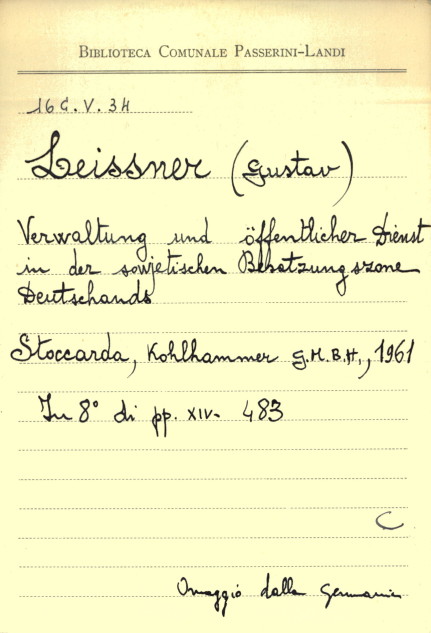 BIBLIOTECA COMUNALE PASSERINI-LANDI
16 C. V. 34
Leissner (Gustav)
Verwaltung und öffentlicher Dienst
in der sowjetischen Besatzungszone
Deutschands
Stoccarda, Kohlhammer G.M.B.H., 1961
In 8° di pp. XIV- 483
C
Omaggio dalla Germania